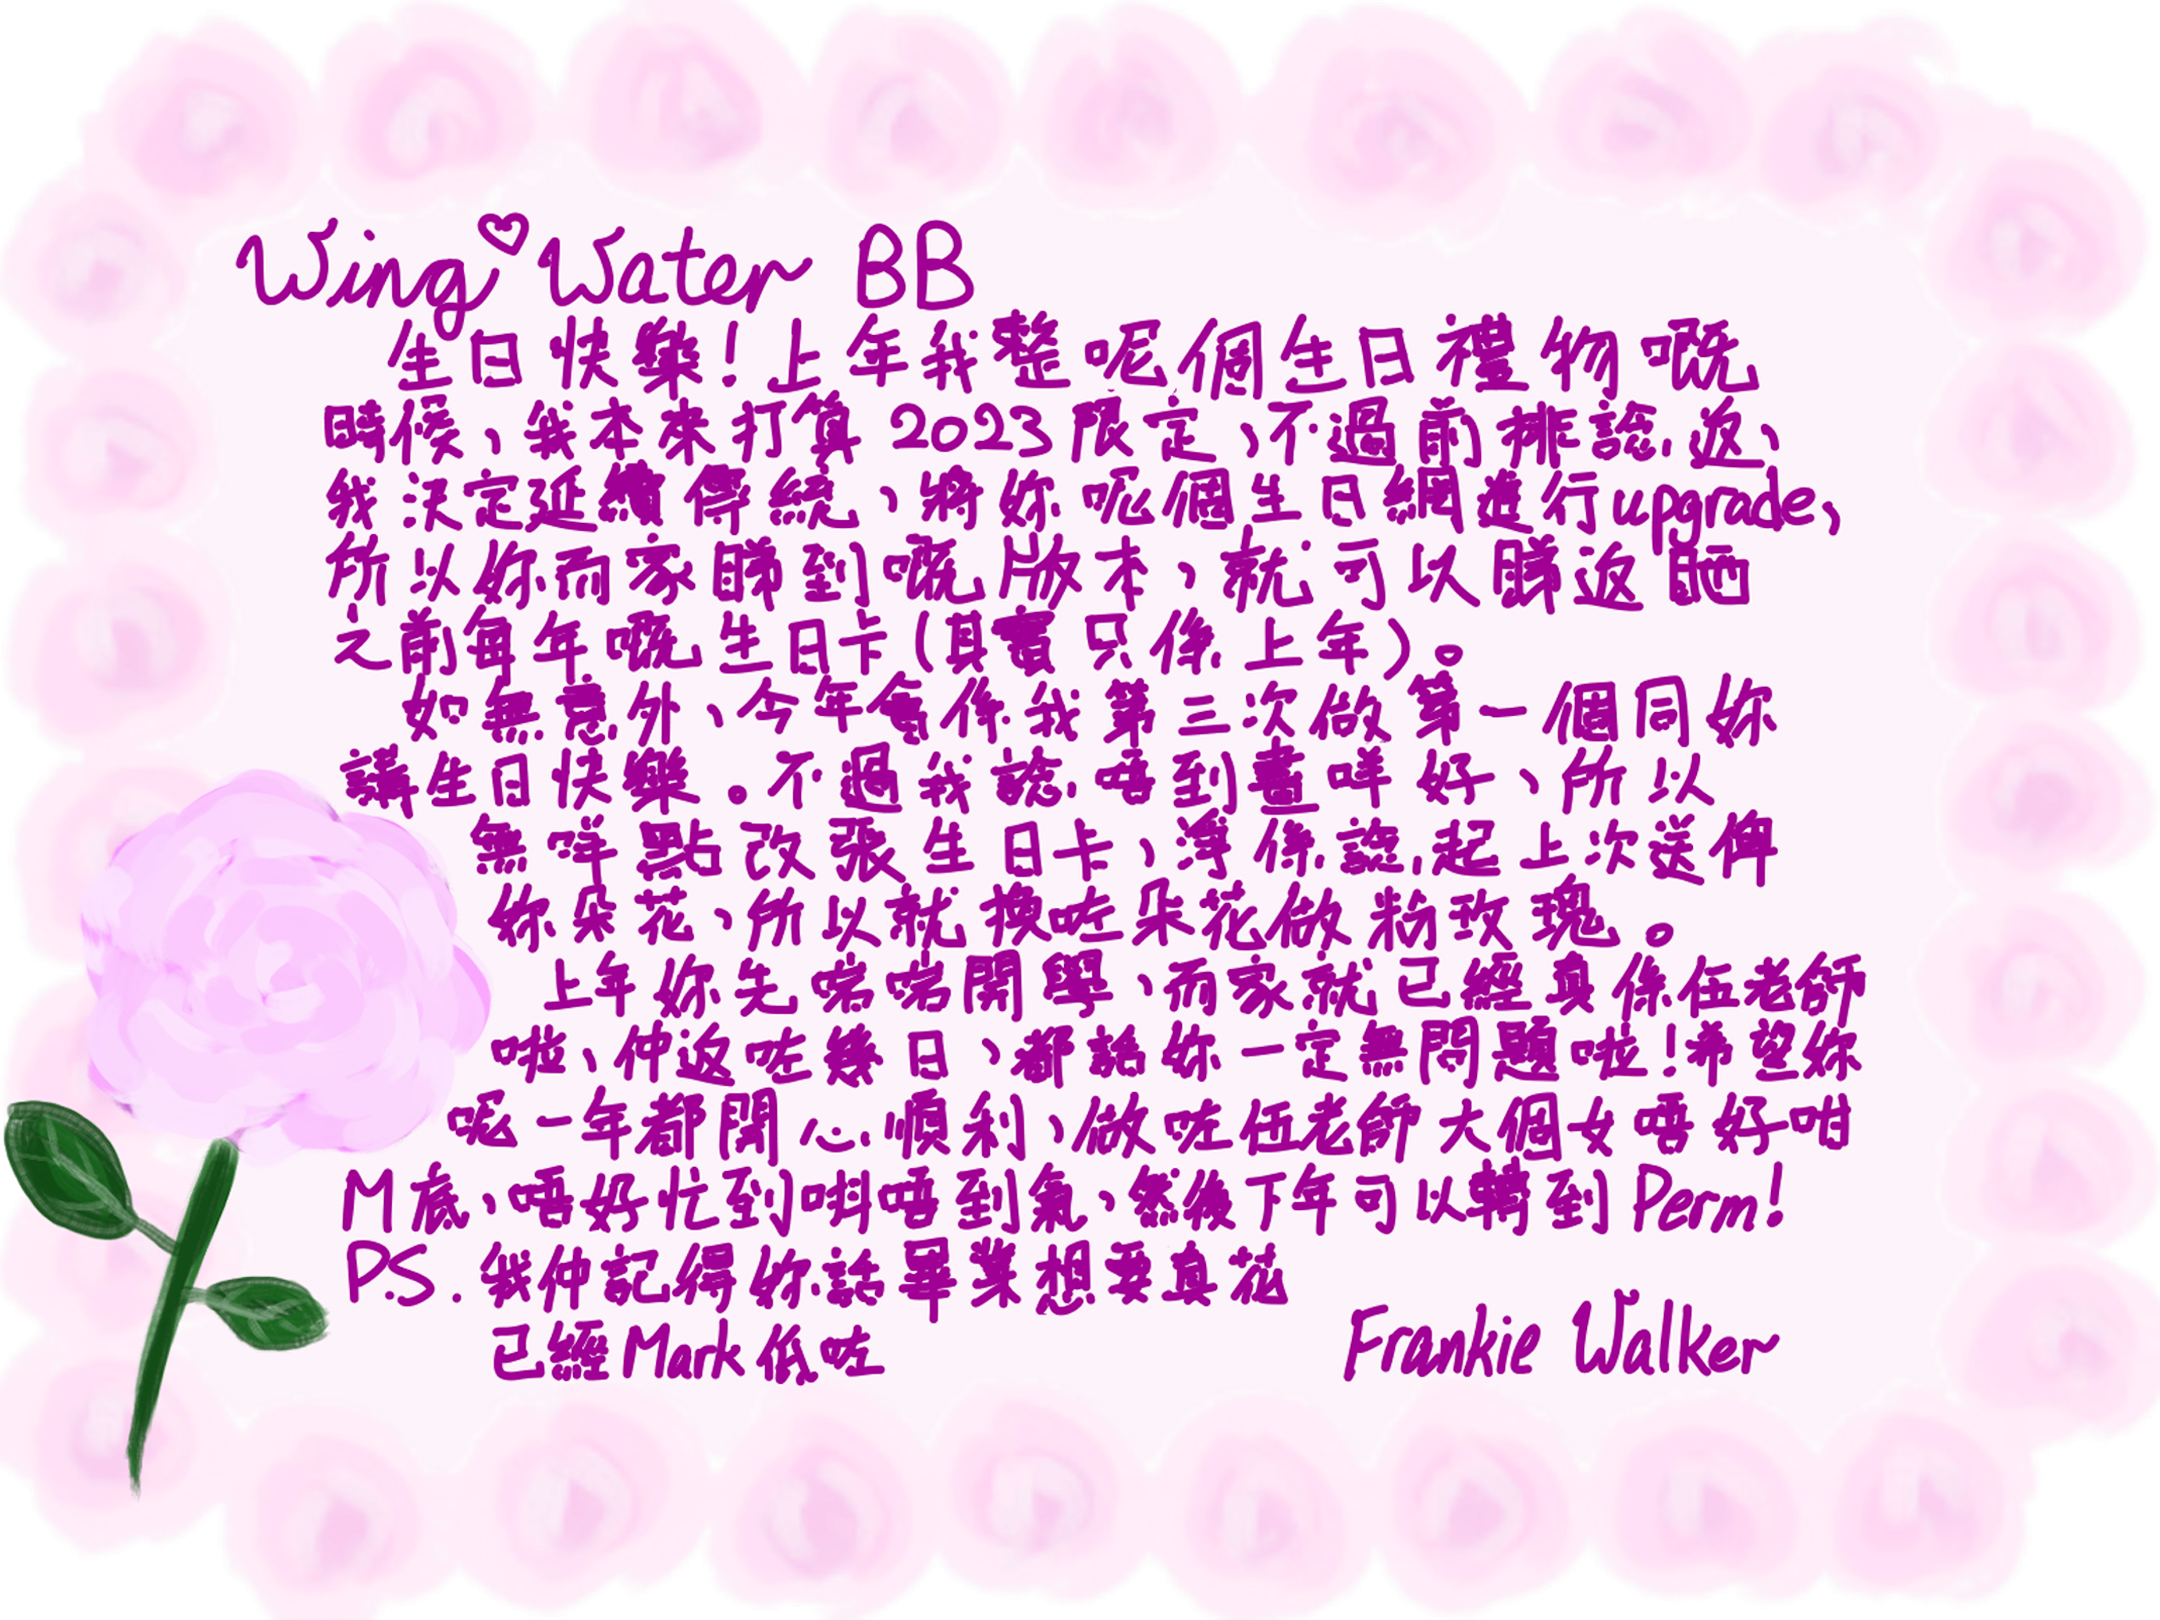 Wing♡Water BB
生日快樂!上年我整呢個生日禮物嘅
時候、我本來打算2023限定、不過前排諗返、
我決定延續傳統、將妳呢個生日網進行upgrade、
所以妳而家睇到嘅版本、就可以睇返晒
之前每年嘅生日卡(其實只係上年)。
如無意外、今年會係我第三次做第一個同妳
講生日快樂。不過我諗唔到畫咩好、所以
無咩點改張生日卡、淨係諗起上次送俾
妳朵花、所以就換咗朵花做粉玫瑰。
上年妳先啱啱開學、而家就已經真係伍老師
啦、仲返咗幾日、都話妳一定無問題啦!希望妳
呢一年都開心順利、做咗伍老師大個女唔好咁
M底、唔好忙到唞唔到氣、然後下年可以轉到Perm!
P.S. 我仲記得妳話畢業想要真花
已經Mark低咗
Frankie Walker